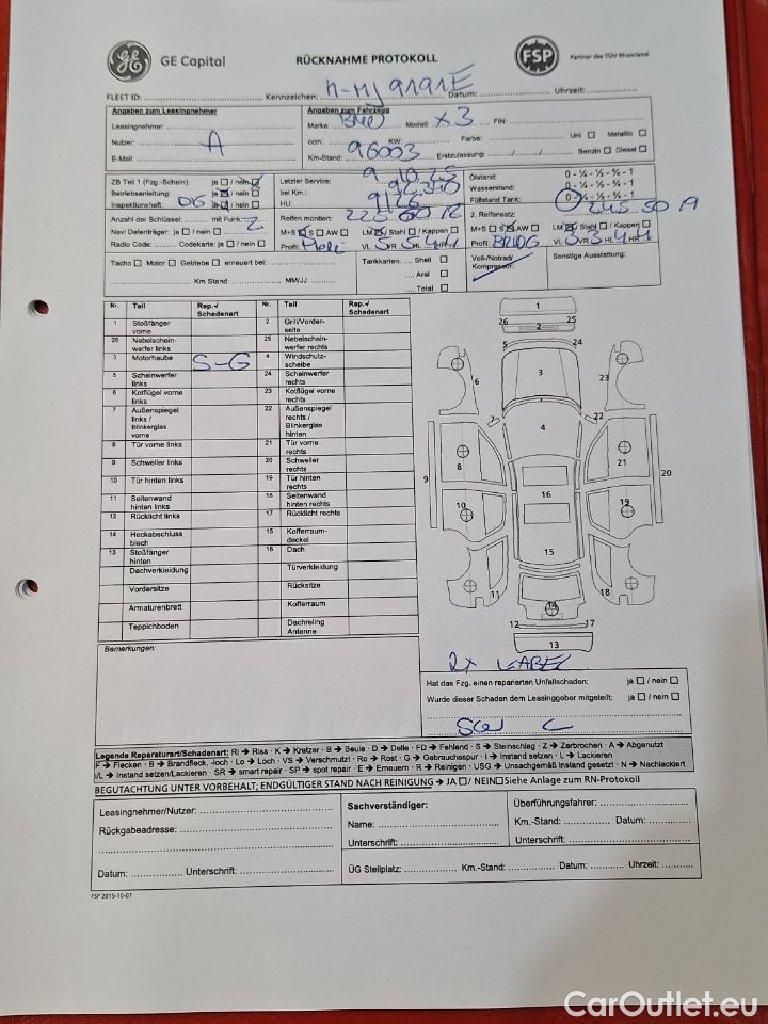 GE Capital RÜCKNAHME PROTOKOLL FSP Partner des TÜV Rheinland
FLEET ID: Kennzeichen: Datum: Uhrzeit:
Angaben zum Leasingnehmer Angaben zum Fahrzeug
Leasingnehmer: Marke: BMW Modell: X3 FIN:
Nutzer: A ccm: KW: Farbe: Uni Metallic
E-Mail: Km-Stand: 96003 Erstzulassung: Benzin Diesel
ZB Teil 1 (Fzg.-Schein): ja / nein Letzter Service: 9 10 25 Ölstand: 0 - ¼ - ½ - ¾ - 1
Betriebsanleitung: ja / nein bei Km.: Wasserstand: 0 - ¼ - ½ - ¾ - 1
Inspektionsheft: DG ja / nein HU: Füllstand Tank: 0 - ¼ - ½ - ¾ - 1
Anzahl der Schlüssel: mit Funk: 2 Reifen montiert: 225 60 18 2. Reifensatz: 245 50 19
Navi Datenträger: ja / nein M+S S AW LM / Stahl / Kappen M+S S AW LM / Stahl / Kappen
Radio Code: Codekarte: ja / nein Profil: VL 5 VR 5 HL 4 HR 4 Profil: BRIDG VL 3 VR 3 HL 4 HR 4
Tacho Motor Getriebe erneuert bei: Tankkarten: Shell Voll-/Notrad/ Sonstige Ausstattung:
Aral Kompressor:
Km Stand: MM/JJ: Total
Nr. Teil Rep.-/ Schadenart Nr. Teil Rep.-/ Schadenart
1 Stoßfänger vorne 2 Grill/Vorderseite
26 Nebelscheinwerfer links 25 Nebelscheinwerfer rechts
3 Motorhaube S-G 4 Windschutzscheibe
5 Scheinwerfer links 24 Scheinwerfer rechts
6 Kotflügel vorne links 23 Kotflügel vorne rechts
7 Außenspiegel links / Blinkerglas vorne 22 Außenspiegel rechts / Blinkerglas hinten
8 Tür vorne links 21 Tür vorne rechts
9 Schweller links 20 Schweller rechts
10 Tür hinten links 19 Tür hinten rechts
11 Seitenwand hinten links 18 Seitenwand hinten rechts
12 Rücklicht links 17 Rücklicht rechts
14 Heckabschlussblech 15 Kofferraumdeckel
13 Stoßfänger hinten 16 Dach
Dachverkleidung Türverkleidung
Vordersitze Rücksitze
Armaturenbrett Kofferraum
Teppichboden Dachreling Antenne
1
26 25
2
5 24
3
6 23
7 22
4
8 21
9 20
10 16 19
15
11 14 18
12 17
13
Bemerkungen: 2x KABEL
Hat das Fzg. einen reparierten Unfallschaden: ja / nein
Wurde dieser Schaden dem Leasinggeber mitgeteilt: ja / nein
Legende Reparaturart/Schadenart: RI → Riss · K → Kratzer · B → Beule · D → Delle · FD → Fehlend · S → Steinschlag · Z → Zerbrochen · A → Abgenutzt
F → Flecken · B → Brandfleck, -loch · Lo → Loch · VS → Verschmutzt · Ro → Rost · G → Gebrauchsspur · I → Instand setzen · L → Lackieren
I/L → Instand setzen/Lackieren · SR → smart repair · SP → spot repair · E → Erneuern · R → Reinigen · USG → Unsachgemäß instand gesetzt · N → Nachlackiert
BEGUTACHTUNG UNTER VORBEHALT; ENDGÜLTIGER STAND NACH REINIGUNG → JA / NEIN Siehe Anlage zum RN-Protokoll
Leasingnehmer/Nutzer: Sachverständiger: Überführungsfahrer:
Rückgabeadresse: Name: Km.-Stand: Datum:
Unterschrift: Unterschrift:
Datum: Unterschrift: ÜG Stellplatz: Km.-Stand: Datum: Uhrzeit:
FSP 2015-10-07
CarOutlet.eu